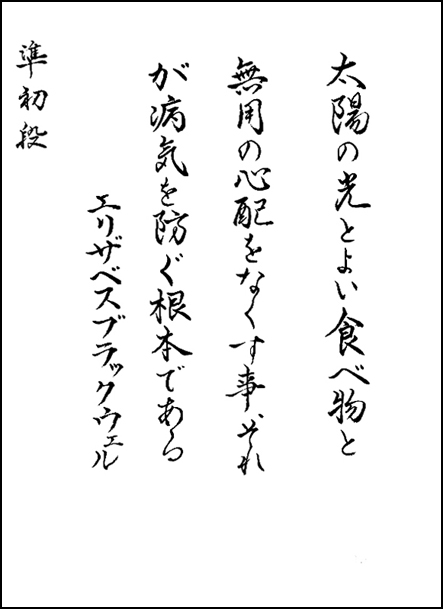 太陽の光とよい食べ物と
無用の心配をなくす事、それ
が病気を防ぐ根本である
エリザベスブラックウェル
準初段